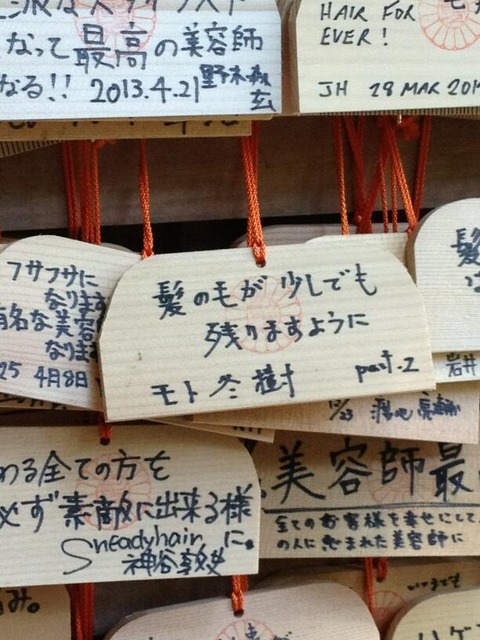 なって最高の美容師
なる!! 2013.4.21
HAIR FOR
EVER!
JH 28 MAR 201
フサフサに
なります
有名な美容
なり
25 4月8日
髪の毛が少しでも
残りますように
モト冬樹 part.2
髪
岩井
10/23
わる全ての方を
必ず素敵に出来る様
に。
Sneadyhair
神谷
美容師最
全てのお客様を幸せにして
の人に恵まれた美容師に
いつまでも
み。